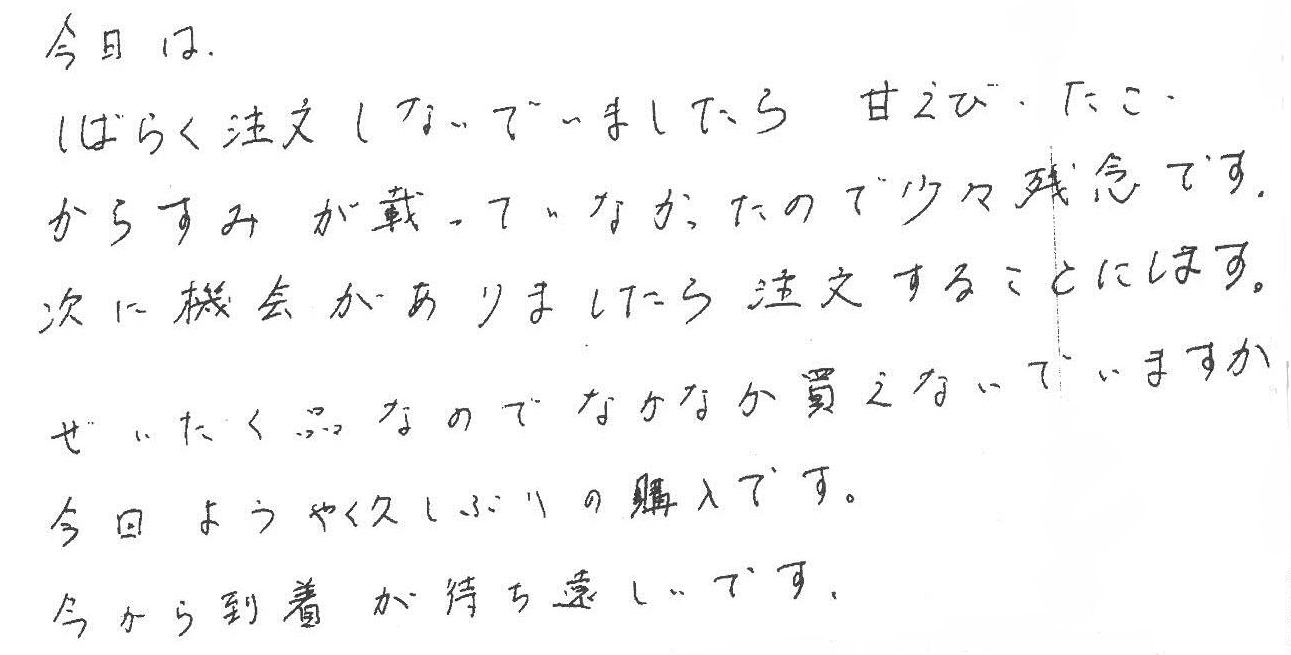 今日は.
しばらく注文しないでいましたら 甘えび・たこ・
からすみ が載っていなかったので少々残念です.
次に機会がありましたら注文することにします。
ぜいたく品なのでなかなか買えないでいますが
今回ようやく久しぶりの購入です。
今から到着が待ち遠しいです.